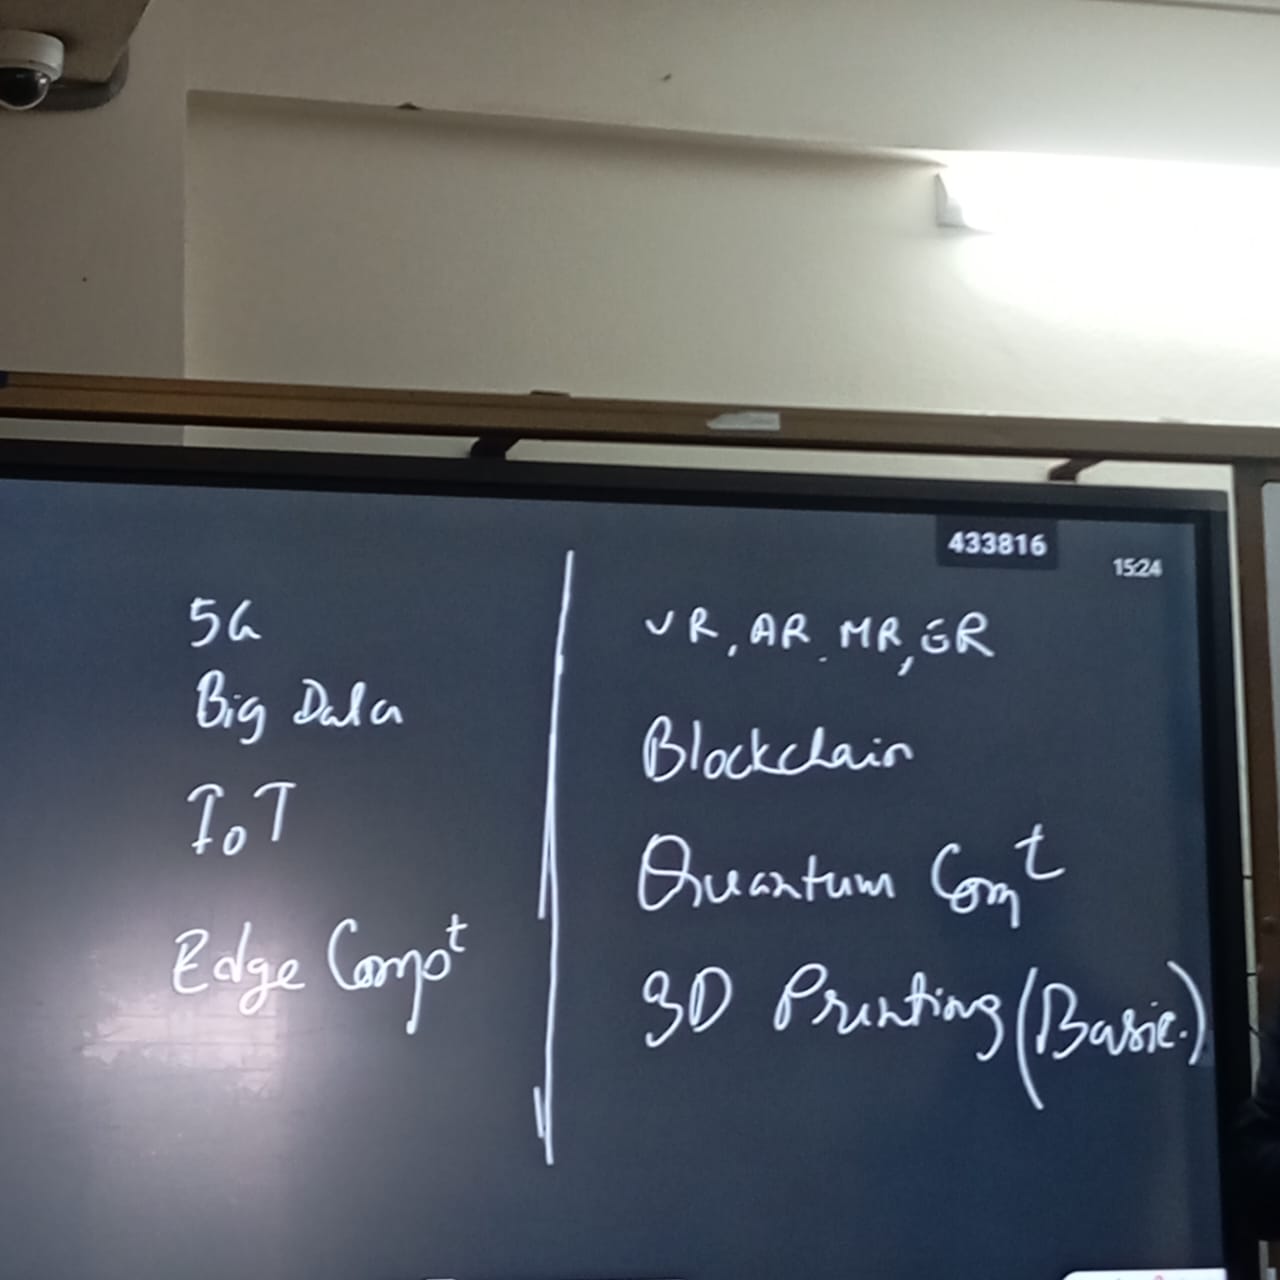 433816
15:24
5G
Big Data
IoT
Edge Compt
VR, AR, MR, ER
Blockchain
Quantum Comt
3D Printing (Basic.)